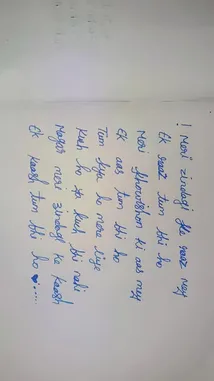 ! Meri zindagi Ke raaz mey
Ek raaz tum bhi ho
Meri khowishon ki aas mey
EK aas tum bhi ho
Tum kya ho mere liye
Kuch ho ya kuch bhi nahi
Magar meri zindagi ke kaash
EK kaash tum bhi ho ♥.....